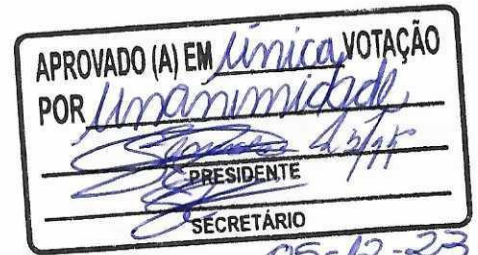 APROVADO (A) EM Única VOTAÇÃO
POR Unanimidade
PRESIDENTE
SECRETÁRIO
05-12-23